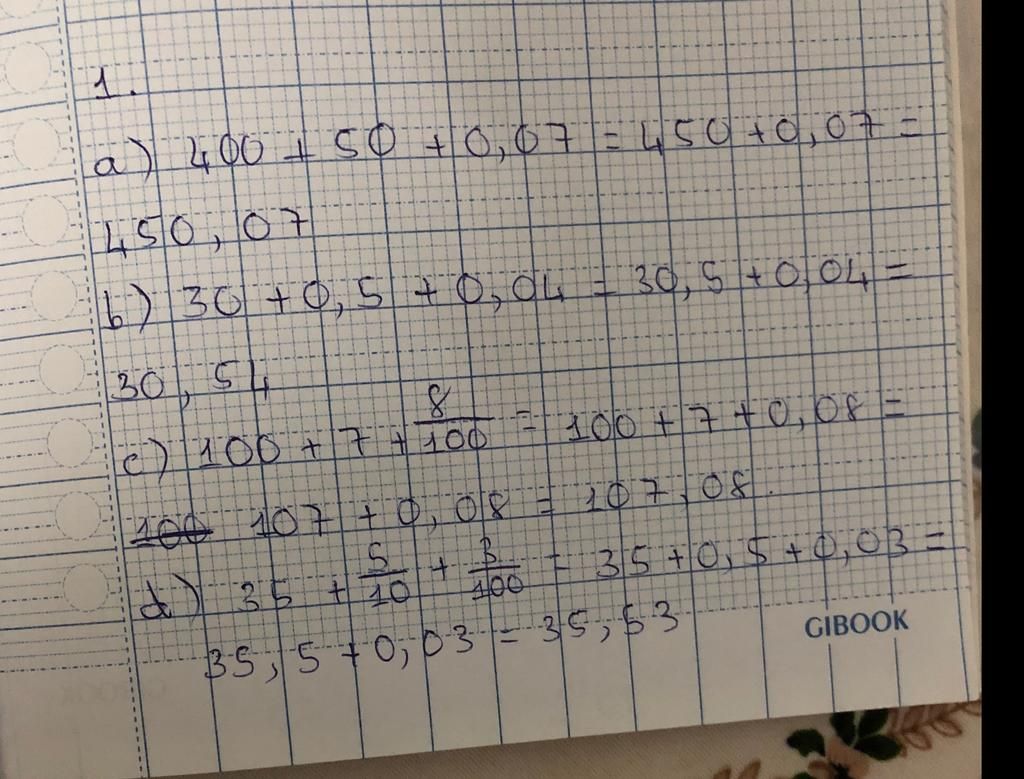 1.
a) 400 + 50 + 0,07 = 450 + 0,07 =
450,07
b) 30 + 0,5 + 0,04 = 30,5 + 0,04 =
30,54
c) 100 + 7 + 8/100 = 100 + 7 + 0,08 =
100 107 + 0,08 = 107,08
d) 35 + 5/10 + 3/100 = 35 + 0,5 + 0,03 =
35,5 + 0,03 = 35,53
GIBOOK